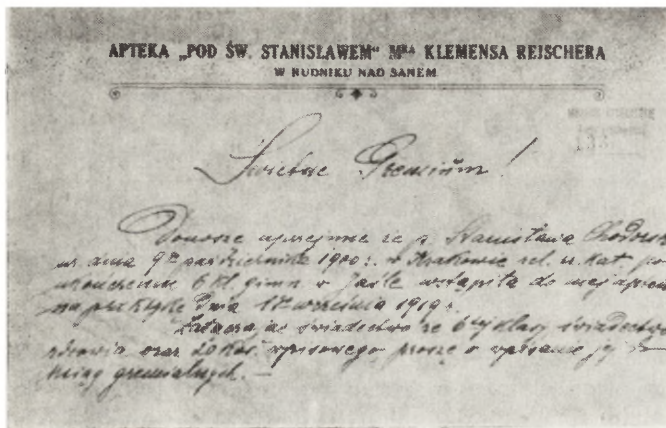 APTEKA „POD ŚW. STANISŁAWEM“ MRA KLEMENSA REISCHERA
W RUDNIKU NAD SANEM
Świetne Gremium!
Donoszę uprzejmie że p. Stanisława
ur. dnia 9go października 1900 r. w Krakowie rel. rz. kat. po
ukończeniu 6 kl. gimn. w Jaśle wstąpiła do mej
na praktykę dnia 1go września 1919 r.
Załączając świadectwo ze 6tej klasy świadectwo
zdrowia oraz 20 Kor. wpisowego proszę o wpisanie jej
ksiąg gremialnych. —